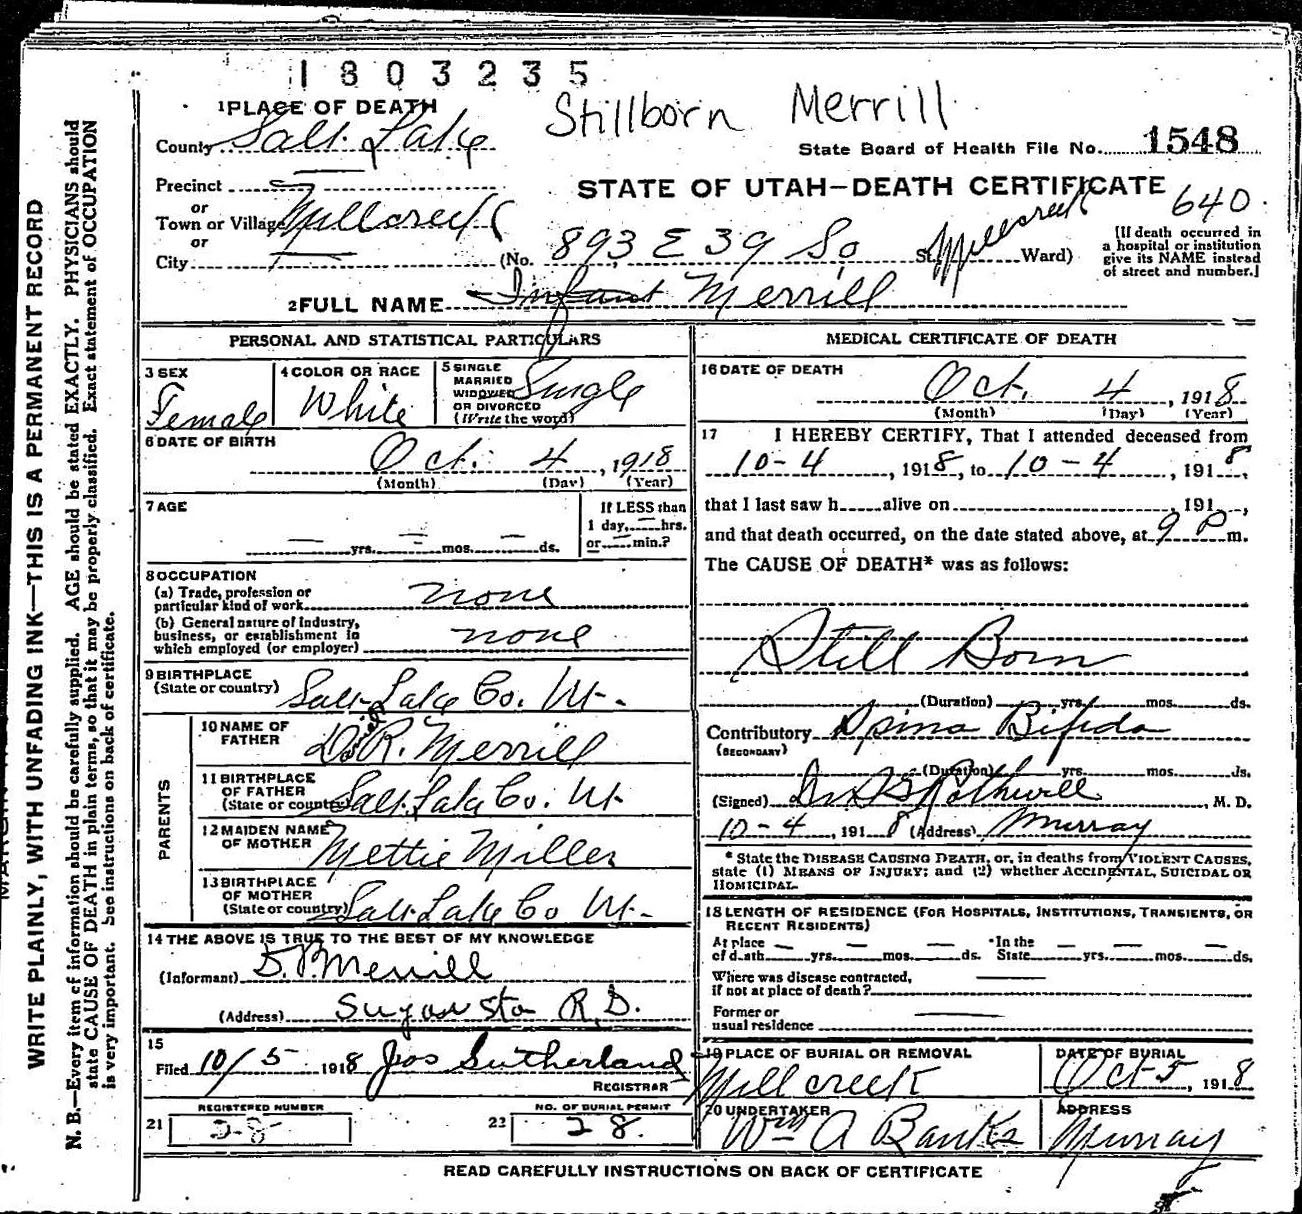 1803235
Stillborn Merrill
1 PLACE OF DEATH
County Salt Lake
State Board of Health File No. 1548
Precinct
or
Town or Village Millcreek
or
City
STATE OF UTAH—DEATH CERTIFICATE
640
(No. 893 E 39 So St. Millcreek Ward)
[If death occurred in
a hospital or institution
give its NAME instead
of street and number.]
2 FULL NAME Infant Merrill
PERSONAL AND STATISTICAL PARTICULARS
3 SEX
Female
4 COLOR OR RACE
White
5 SINGLE
MARRIED
WIDOWED
OR DIVORCED
(Write the word)
Single
6 DATE OF BIRTH
Oct. 4, 1918
(Month) (Day) (Year)
7 AGE
— yrs. — mos. — ds.
If LESS than
1 day, — hrs.
or — min.?
8 OCCUPATION
(a) Trade, profession or
particular kind of work none
(b) General nature of Industry,
business, or establishment in
which employed (or employer) none
9 BIRTHPLACE
(State or country) Salt Lake Co. Ut.
PARENTS
10 NAME OF
FATHER
R. Merrill
11 BIRTHPLACE
OF FATHER
(State or country) Salt Lake Co. Ut
12 MAIDEN NAME
OF MOTHER
Mettie Miller
13 BIRTHPLACE
OF MOTHER
(State or country) Salt Lake Co Ut.
14 THE ABOVE IS TRUE TO THE BEST OF MY KNOWLEDGE
(Informant) Merrill
(Address) Sugar Sta R.D.
15
Filed 10/5 1918 Jos Sutherland
REGISTRAR
REGISTERED NUMBER
21 28
NO. OF BURIAL PERMIT
22 28.
MEDICAL CERTIFICATE OF DEATH
16 DATE OF DEATH
Oct. 4, 1918
(Month) (Day) (Year)
17 I HEREBY CERTIFY, That I attended deceased from
10-4, 1918, to 10-4, 1918,
that I last saw h alive on , 191 ,
and that death occurred, on the date stated above, at 9 P m.
The CAUSE OF DEATH* was as follows:
Still Born
(Duration) yrs. mos. ds.
Contributory Spina Bifida
(SECONDARY)
(Duration) yrs. mos. ds.
(Signed) Rothwell, M. D.
10-4, 1918 (Address) Murray
* State the DISEASE CAUSING DEATH, or, in deaths from VIOLENT CAUSES,
state (1) MEANS OF INJURY; and (2) whether ACCIDENTAL, SUICIDAL OR
HOMICIDAL.
18 LENGTH OF RESIDENCE (FOR HOSPITALS, INSTITUTIONS, TRANSIENTS, OR
RECENT RESIDENTS)
At place
of death — yrs. — mos. — ds.
In the
State — yrs. — mos. — ds.
Where was disease contracted,
if not at place of death?
Former or
usual residence
19 PLACE OF BURIAL OR REMOVAL
Millcreek
DATE OF BURIAL
Oct 5, 1918
20 UNDERTAKER
Wm A Banks
ADDRESS
Murray
READ CAREFULLY INSTRUCTIONS ON BACK OF CERTIFICATE
WRITE PLAINLY, WITH UNFADING INK—THIS IS A PERMANENT RECORD
N. B.—Every item of information should be carefully supplied. AGE should be stated EXACTLY. PHYSICIANS should
state CAUSE OF DEATH in plain terms, so that it may be properly classified. Exact statement of OCCUPATION
is very important. See instructions on back of certificate.